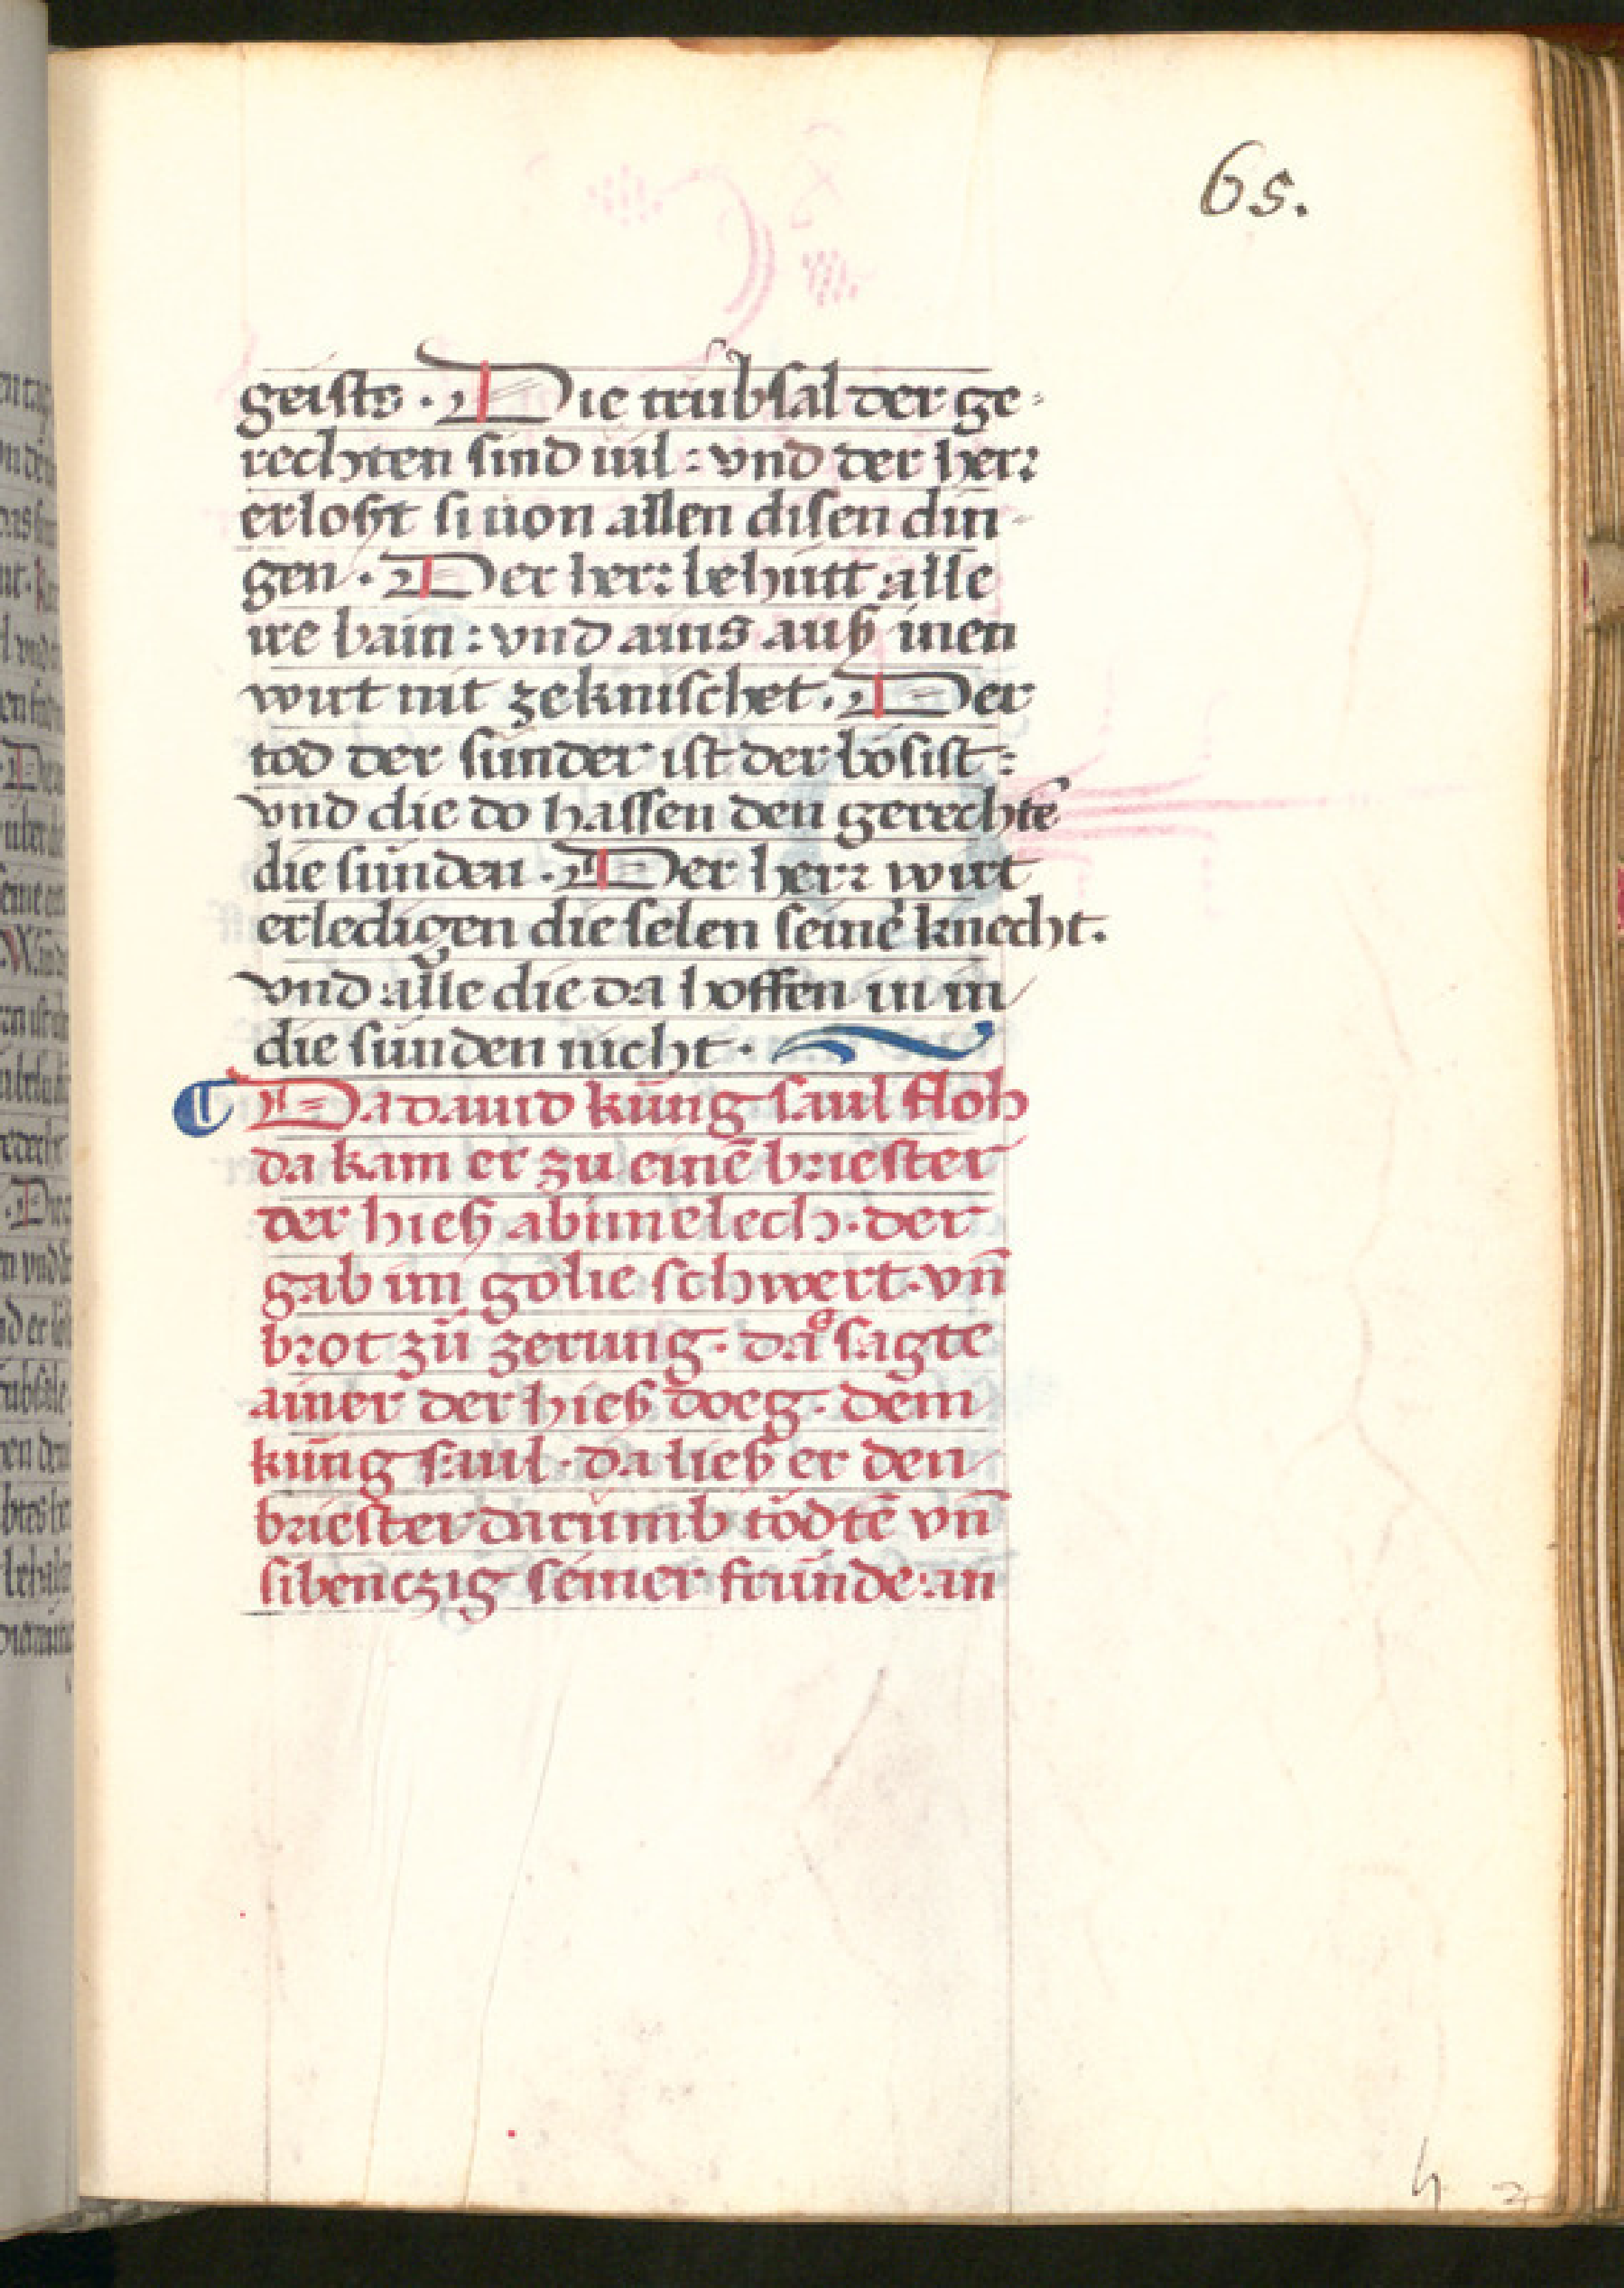 65.
geists · Die trübsal der ge-
rechten sind uil : vnd der herr
erloßt si uon allen disen din-
gen · Der herr behütt alle
ire bain : vnd ains auß inen
wirt nit zeknischet. Der
tod der sünder ist der bösist :
vnd die do hassen den gerechtē
die sünden · Der herr wirt
erledigen die selen seinē knecht.
vnd alle die da hoffen in in
die sünden nicht ·
Da dauid küng saul floh
da kam er zu einē briester
der hieß abimelech · der
gab im golie schwert · vn̄
brot zů zerung · daͦ sagte
ainer der hieß doeg · dem
küng saul · da ließ er den
briester darumb tödtē vn̄
sibenczig seiner fründe : an
h 2